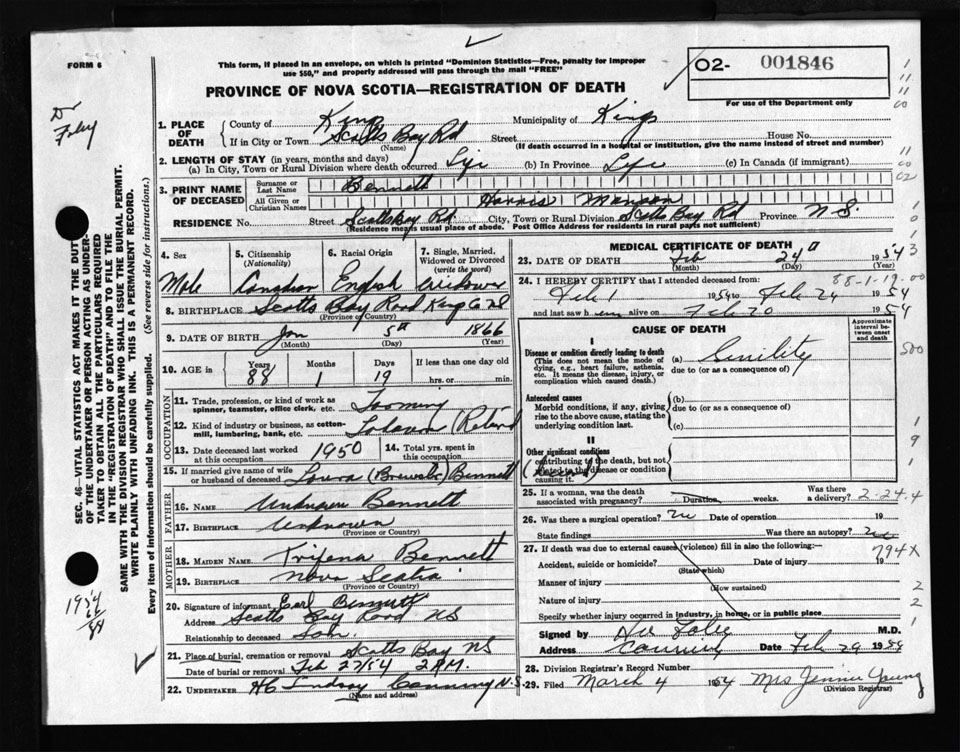 FORM 6
This form, if placed in an envelope, on which is printed "Dominion Statistics—Free, penalty for improper
use $50," and properly addressed will pass through the mail "FREE"
02- 001846
PROVINCE OF NOVA SCOTIA—REGISTRATION OF DEATH
For use of the Department only
Dr
Foley
SEC. 46—VITAL STATISTICS ACT MAKES IT THE DUTY
OF THE UNDERTAKER OR PERSON ACTING AS UNDER-
TAKER TO OBTAIN ALL THE PARTICULARS REQUIRED
IN THE "REGISTRATION OF DEATH" AND TO FILE THE
SAME WITH THE DIVISION REGISTRAR WHO SHALL ISSUE THE BURIAL PERMIT.
WRITE PLAINLY WITH UNFADING INK. THIS IS A PERMANENT RECORD.
Every item of information should be carefully supplied. (See reverse side for instructions.)
1. PLACE OF DEATH County of Kings Municipality of Kings
If in City or Town Scotts Bay Rd Street House No.
(Name) (If death occurred in a hospital or institution, give the name instead of street and number)
2. LENGTH OF STAY (in years, months and days)
(a) In City, Town or Rural Division where death occurred Life (b) In Province Life (c) In Canada (if immigrant)
3. PRINT NAME OF DECEASED Surname or Last Name Bennett
All Given or Christian Names Harris Manson
RESIDENCE No. Street Scotts Bay Rd. City, Town or Rural Division Scotts Bay Rd Province N S.
(Residence means usual place of abode. Post Office Address for residents in rural parts not sufficient)
4. Sex 5. Citizenship (Nationality) 6. Racial Origin 7. Single, Married, Widowed or Divorced (write the word)
Male Canadian English widower
8. BIRTHPLACE Scotts Bay Road Kings Co NS
(Province or Country)
9. DATE OF BIRTH Jan 5th 1866
(Month) (Day) (Year)
10. AGE in Years Months Days If less than one day old
88 1 19 hrs. or min.
OCCUPATION
11. Trade, profession, or kind of work as spinner, teamster, office clerk, etc. Farming
12. Kind of industry or business, as cotton-mill, lumbering, bank, etc. (Retired
13. Date deceased last worked at this occupation 1950 14. Total yrs. spent in this occupation
15. If married give name of wife or husband of deceased Loura (Brewster) Bennett
FATHER
16. NAME Unknown Bennett
17. BIRTHPLACE Unknown
(Province or Country)
MOTHER
18. MAIDEN NAME Trifena Bennett
19. BIRTHPLACE Nova Scotia
(Province or Country)
20. Signature of informant Earl Bennett
Address Scotts Bay Road NS
Relationship to deceased Son.
21. Place of burial, cremation or removal Scotts Bay NS
Date of burial or removal Feb 27/54 2 P.M.
22. UNDERTAKER H C Lindsay Canning N.S
(Name and address)
MEDICAL CERTIFICATE OF DEATH
23. DATE OF DEATH Feb 24 1954
(Month) (Day) (Year)
88-1-19-00
24. I HEREBY CERTIFY that I attended deceased from:
Feb 1 1954 to Feb 24 1954
and last saw him alive on Feb 20 1954
CAUSE OF DEATH
Approximate interval between onset and death
I
Disease or condition directly leading to death (a) Senility
(This does not mean the mode of dying, e.g., heart failure, asthenia, etc. It means the disease, injury, or complication which caused death.)
due to (or as a consequence of)
Antecedent causes
Morbid conditions, if any, giving rise to the above cause, stating the underlying condition last.
(b)
due to (or as a consequence of)
(c)
II
Other significant conditions
contributing to the death, but not related to the disease or condition causing it.
25. If a woman, was the death associated with pregnancy? Duration weeks. Was there a delivery? 2-24.4
26. Was there a surgical operation? no Date of operation 19
State findings Was there an autopsy? no
27. If death was due to external causes (violence) fill in also the following:— 794X
Accident, suicide or homicide? Date of injury 19
(State which)
Manner of injury
(How sustained)
Nature of injury
Specify whether injury occurred in industry, in home, or in public place
Signed by M.D.
Address Canning Date Feb 29 1954
28. Division Registrar's Record Number
29. Filed March 4 1954 Mrs Jennie Young
(Division Registrar)
1954
88
500